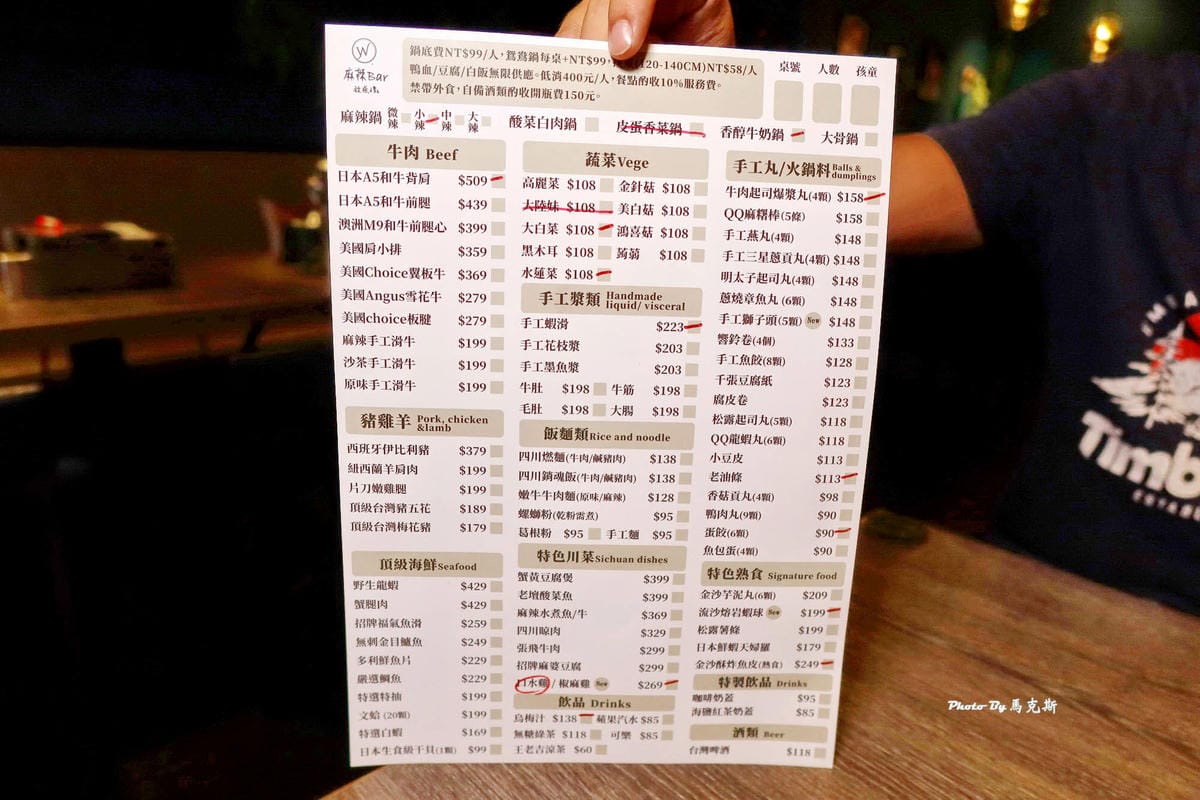 W
麻辣Bar
鍋底費NT$99/人，鴛鴦鍋每桌+NT$99，(120-140CM)NT$58/人
鴨血/豆腐/白飯無限供應。低消400元/人，餐點酌收10%服務費。
禁帶外食，自備酒類酌收開瓶費150元。
桌號 人數 孩童
麻辣鍋 微辣 小辣 中辣 大辣 酸菜白肉鍋 皮蛋香菜鍋 香醇牛奶鍋 大骨鍋
牛肉 Beef
日本A5和牛背肩 $509
日本A5和牛前腿 $439
澳洲M9和牛前腿心 $399
美國肩小排 $359
美國Choice翼板牛 $369
美國Angus雪花牛 $279
美國choice板腱 $279
麻辣手工滑牛 $199
沙茶手工滑牛 $199
原味手工滑牛 $199
豬雞羊 Pork, chicken &lamb
西班牙伊比利豬 $379
紐西蘭羊肩肉 $199
片刀嫩雞腿 $199
頂級台灣豬五花 $189
頂級台灣梅花豬 $179
頂級海鮮 Seafood
野生龍蝦 $429
蟹腿肉 $429
招牌福氣魚滑 $259
無刺金目鱸魚 $249
多利鮮魚片 $229
嚴選鯛魚 $229
特選特抽 $199
文蛤 (20顆) $199
特選白蝦 $169
日本生食級干貝(1顆) $99
蔬菜Vege
高麗菜 $108 金針菇 $108
大陸妹 $108 美白菇 $108
大白菜 $108 鴻喜菇 $108
黑木耳 $108 蒟蒻 $108
水蓮菜 $108
手工漿類 Handmade liquid/ visceral
手工蝦滑 $223
手工花枝漿 $203
手工墨魚漿 $203
牛肚 $198 牛筋 $198
毛肚 $198 大腸 $198
飯麵類Rice and noodle
四川燃麵(牛肉/鹹豬肉) $138
四川銷魂飯(牛肉/鹹豬肉) $138
嫩牛牛肉麵(原味/麻辣) $128
螺螄粉(乾粉需煮) $95
葛根粉 $95 手工麵 $95
特色川菜Sichuan dishes
蟹黃豆腐煲 $399
老壇酸菜魚 $399
麻辣水煮魚/牛 $369
四川晾肉 $329
張飛牛肉 $299
招牌麻婆豆腐 $299
口水雞/ 椒麻雞 New $269
飲品 Drinks
烏梅汁 $138 蘋果汽水 $85
無糖綠茶 $118 可樂 $85
王老吉涼茶 $60
手工丸/火鍋料 Balls & dumplings
牛肉起司爆漿丸(4顆) $158
QQ麻糬棒(5條) $158
手工燕丸(4顆) $148
手工三星蔥貢丸(4顆) $148
明太子起司丸(4顆) $148
蔥燒章魚丸 (6顆) $148
手工獅子頭(5顆) New $148
響鈴卷(4個) $133
手工魚餃(8顆) $128
千張豆腐紙 $123
腐皮卷 $123
松露起司丸(5顆) $118
QQ龍蝦丸(6顆) $118
小豆皮 $113
老油條 $113
香菇貢丸(4顆) $98
鴨肉丸(9顆) $90
蛋餃(6顆) $90
魚包蛋(4顆) $90
特色熟食 Signature food
金沙芋泥丸(6顆) $209
流沙熔岩蝦球 New $199
松露薯條 $199
日本鮮蝦天婦羅 $179
金沙酥炸魚皮(熟食) $249
特製飲品 Drinks
咖啡奶蓋 $95
海鹽紅茶奶蓋 $85
酒類 Beer
台灣啤酒 $118
Timb
Photo By 馬克斯